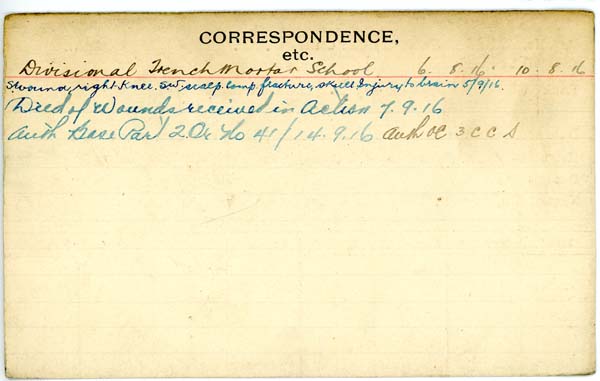 CORRESPONDENCE,
etc.
Divisional Trench Mortar School 6. 8. 16. 10. 8. 16
S. wound, right Knee. S.W. scalp. Comp fracture, skull Injury to brain 5/9/16.
Died of Wounds received in Action 7. 9. 16
Auth Base Part 2. Or. No 41/14. 9. 16 Auth OC 3 C C S